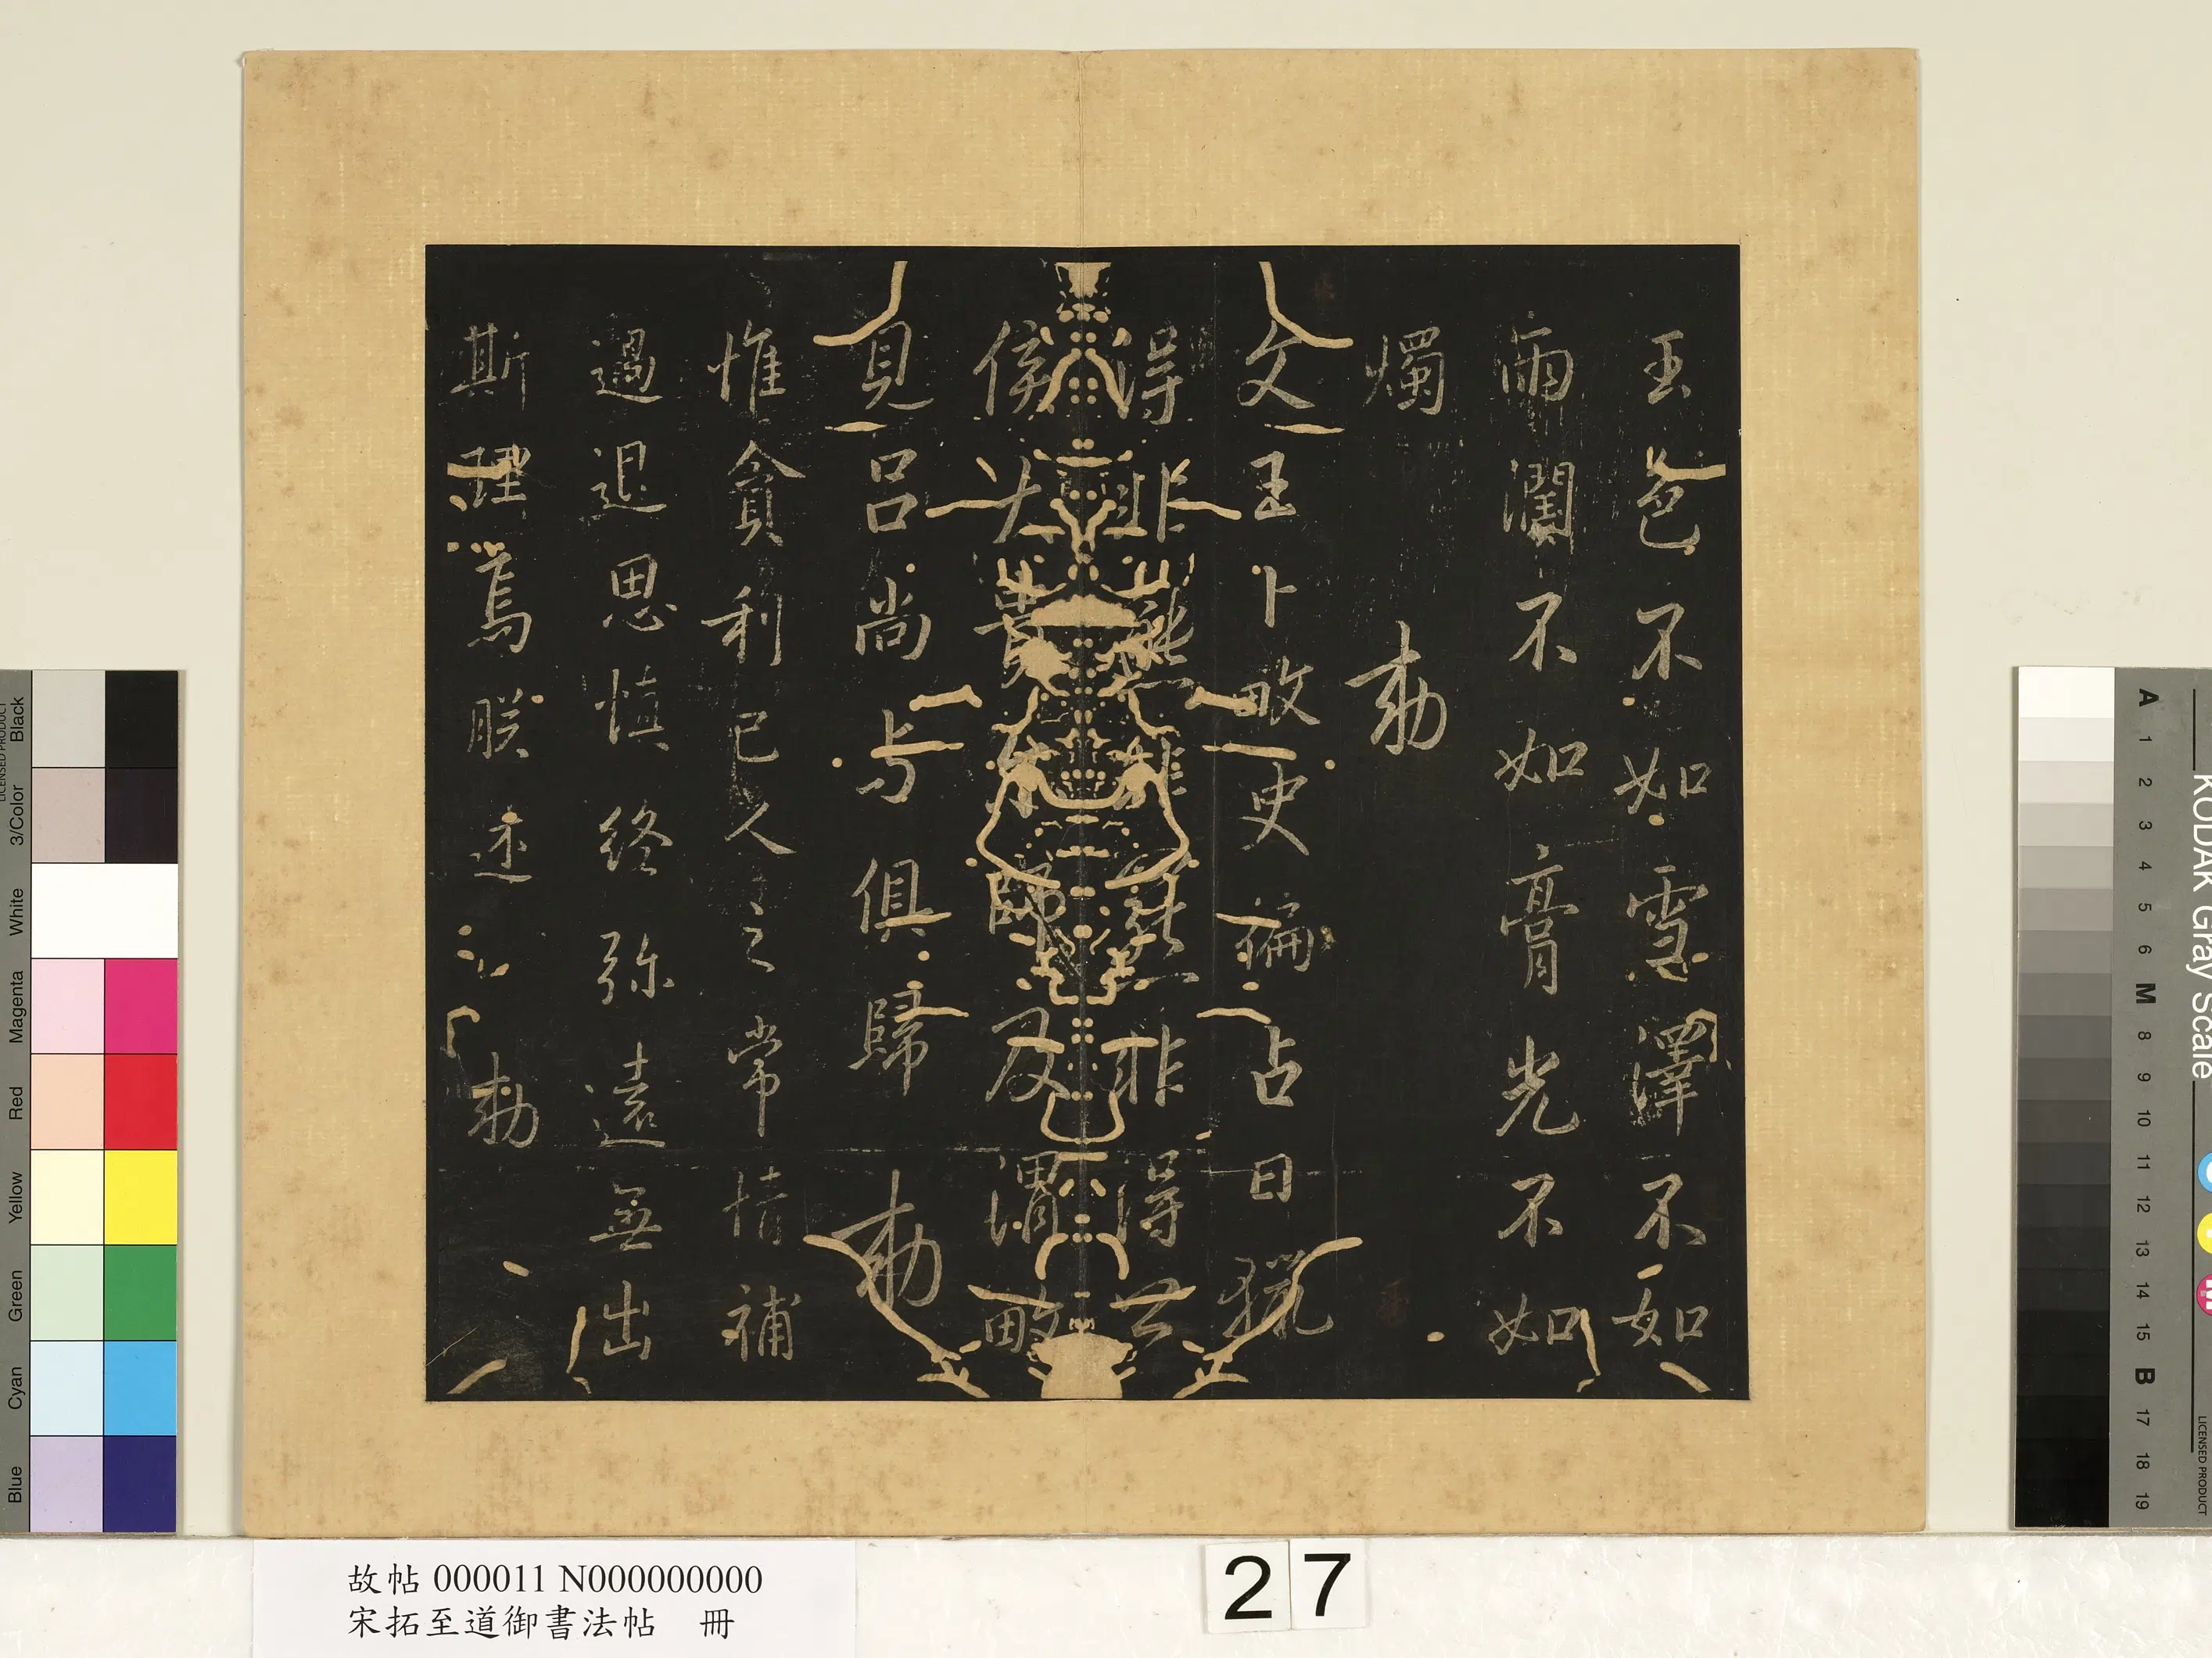 玉色不如雪澤不如
雨潤不如膏光不如
燭 勅
文王卜畋史編占曰獵
得非熊非羆非得公
侯大貴來歸及渭畋
見呂尚与俱歸 勅
惟貪利己人之常情補
過退思慎終弥遠無出
斯理焉朕述 勅
故帖 000011 N000000000
宋拓至道御書法帖 冊
27
Black
3/Color
White
Magenta
Red
Yellow
Green
Cyan
Blue
LICENSED PRODUCT
KODAK Gray Scale
A 1 2 3 4 5 6 M 8 9 10 11 12 13 14 15 B 17 18 19
LICENSED PRODUCT